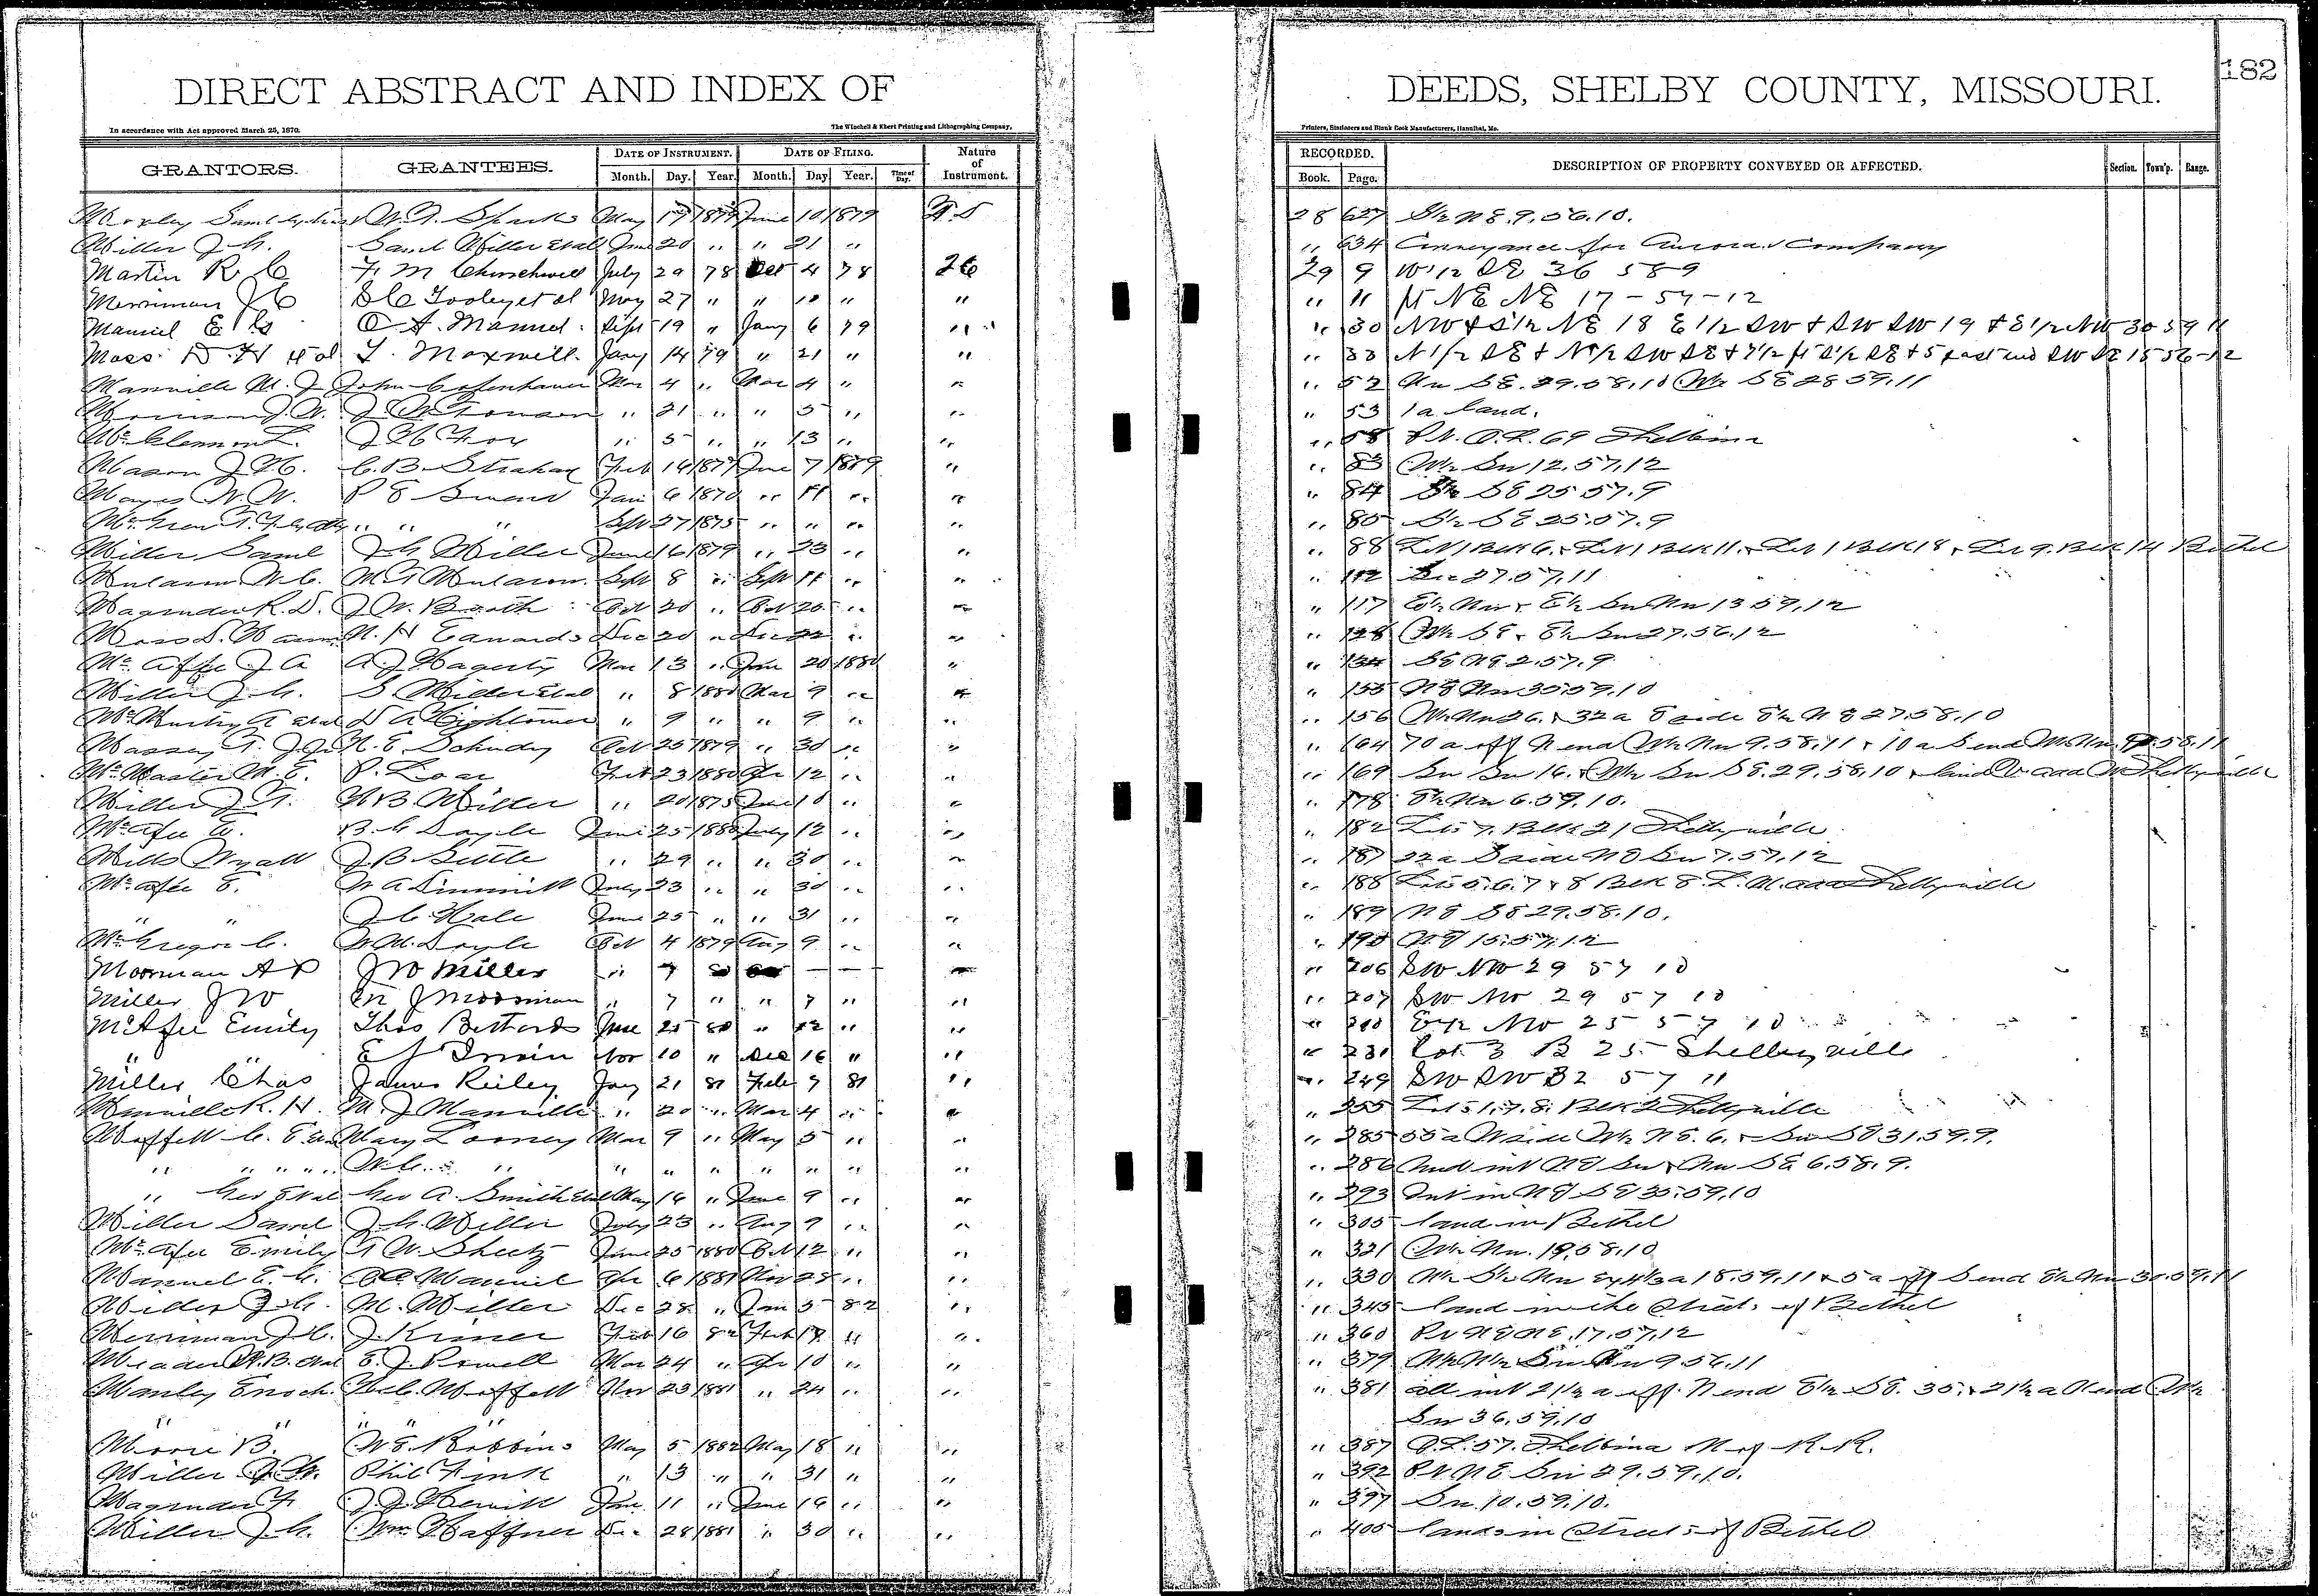 182
DIRECT ABSTRACT AND INDEX OF DEEDS, SHELBY COUNTY, MISSOURI.
In accordance with Act approved March 25, 1870. The Winchell & Ebert Printing and Lithographing Company, Printers, Stationers and Blank Book Manufacturers, Hannibal, Mo.
GRANTORS. GRANTEES. DATE OF INSTRUMENT. DATE OF FILING. Nature of Instrument. RECORDED. DESCRIPTION OF PROPERTY CONVEYED OR AFFECTED. Section. Town'p. Range.
Month. Day. Year. Month. Day Year. Time of Day. Book. Page.
W. T. Sparks May 17 1879 June 10 1879 28 627 N E. 9. 56. 10.
Miller J. G. Saml Miller et al June 20 " " 21 " " 634 Conveyance for Aurora Company
Martin R C F. M Churchwell July 29 78 Oct 4 78 29 9 W 1/2 SE 36 58 9
Merriman J C S C Tooley et al May 27 " " 10 " " " 11 pt NE NE 17 - 57 - 12
Manuel E G O A. Manuel Sept 19 " Jany 6 79 " " 30 NW & S 1/2 NE 18 E 1/2 SW & SW SW 19 & E 1/2 NW 30 59 11
Moss D. H et al T. Maxwell Jany 14 79 " 21 " " " 33 N 1/2 SE & N 1/2 SW SE & SW SE 15 56-12
Manville M. J John Copenhaver Mar 4 " Mar 4 " " " 52 Nw SE. 29. 58. 10 W 1/2 SE 28 59. 11
Morrison J. W. J. W Towson " 21 " " 5 " " " 53 1 a land.
J W Fox " 5 " " 13 " " " 58 Pt. O. L. 69 Shelbina
Mason J. C. B. Strahan Feb 14 1877 June 7 1879 " " 83 W 1/2 Sw 12. 57. 12
Mayes W. W. P E Jan 6 1870 " 11 " " " 84 S 1/2 SE 25 57. 9
" " Sept 27 1875 " " " " " 85 S 1/2 SE 25. 57. 9
Miller Saml J. G Miller June 16 1879 " 23 " " " 88 Lot 1 Blk 6. & Lot 1 Blk 11. & Lot 1 Blk 18 & Lot 9. Blk 14 Bethel
Sept 8 " Sept 11 " " " 112 27. 57. 11
Magruder R. D. J. W. Booth Oct 20 " Oct 20 " " " 117 E 1/2 Nw & E 1/2 Sw Nw 13 59, 12
N. H Edwards Dec 20 " Dec 22 " " " 128 W 1/2 SE & E 1/2 Sw 27. 56. 12
McAfee J A A. J Hagerty Mar 13 " June 20 1880 " " 134 SE NE 2. 57. 9
Miller J. G. S. Miller et al " 8 1880 Mar 9 " " " 155 NE Nw 30. 59. 10
McMurtry A et al D A Hightower " 9 " " 9 " " " 156 W 1/2 Nw 26. & 32 a E side E 1/2 N E 27. 58. 10
Massey T. J. Jr H. E. Schudy Oct 25 1879 " 30 " " " 164 70 a off N end W 1/2 Nw 9. 58. 11 & 10 a S end 58. 11
McMaster M. E. P. Loar Feb 23 1880 Apr 12 " " " 169 Sw Sw 16. & W 1/2 Sw SE. 29. 58. 10 & land Shelbyville
Miller J. T. W B. Miller " 20 1875 June 10 " " " 178 E 1/2 Nw 6. 59. 10.
McAfee E. B. C Doyle June 25 1880 July 12 " " " 182 Lot 7. Blk 21 Shelbyville
Mills Wyatt J. B Settle " 29 " " 30 " " " 187 22 a S side NE Sw 7. 57. 12
McAfee E. W A Dimmitt July 23 " " 30 " " " 188 Lots 5. 6. 7 & 8 Blk 8. L. M. add Shelbyville
" " J. C. Hale June 25 " " 31 " " " 189 NE SE 29. 58. 10.
McGregor C. W. M. Doyle Oct 4 1879 Aug 9 " " " 190 NE 15. 57. 12
Moorman A P J W Miller " 7 80 — — " " 206 SW NW 29 57 10
Miller J W M J Moorman " 7 " " 7 " " " 207 SW NW 29 57 10
McAfee Emily Thos Bettards June 25 80 " 12 " " " 210 E 1/2 NW 25 57 10
" " E J Irwin Nov 10 " Dec 16 " " " 231 Lot 3 B 25 Shelbyville
Miller Chas James Reiley Jany 21 81 Feb 9 81 " " 249 SW SW 32 57 11
Manville R. H. M. J Manville " 20 " Mar 4 " " " 255 Lots 1. 7. 8. Blk 2 Shelbyville
Moffett C. E. et al Mary Looney Mar 9 " May 5 " " " 285 55 a W side W 1/2 N E. 6. & Sw SE 31. 59. 9.
" " " W. C. " " " " " " " " " 286 Und int NE Sw & Nw SE 6. 58. 9.
" Geo et al Geo A. Smith et al May 14 " June 9 " " " 293 Int in NE SE 35. 59. 10
Miller Saml J. G. Miller July 23 " Aug 9 " " " 305 land in Bethel
McAfee Emily T W. Sheetz June 25 1880 Oct 12 " " " 321 W 1/2 Nw. 19. 58. 10
Manuel E. G. O A Manuel Apr 6 1881 Nov 28 " " " 330 W 1/2 S 1/2 Nw 18. 59. 11 & 5 a off S end E 1/2 Nw 30. 59. 11
Miller J. G. M. Miller Dec 28 " Jan 5 82 " " 345 land in the Streets of Bethel
Merriman J. C. J. Kimer Feb 16 82 Feb 18 " " " 360 Pt NE NE. 17. 57. 12
Meador H. B. et al E. J. Powell Mar 24 " Apr 10 " " " 379 W 1/2 W 1/2 Sw Nw 9 56. 11
Manley Enoch Moffett Nov 23 1881 " 24 " " " 381 all int 21 1/2 a off N end E 1/2 SE. 35. & 21 1/2 a N end W 1/2
" " " " " Sw 36. 59. 10
Moore B. W. E. Robbins May 5 1882 May 18 " " " 387 O. L. 57. Shelbina N of R. R.
Miller J. W. Phil Fink " 13 " " 31 " " " 392 Pt N E Sw 29. 59. 10.
Magruder F. J. J. Hewitt Jan 11 " June 14 " " " 397 Sw. 10. 59. 10.
Miller J. G. Wm Haffner Dec 28 1881 " 30 " " " 405 lands in Streets of Bethel